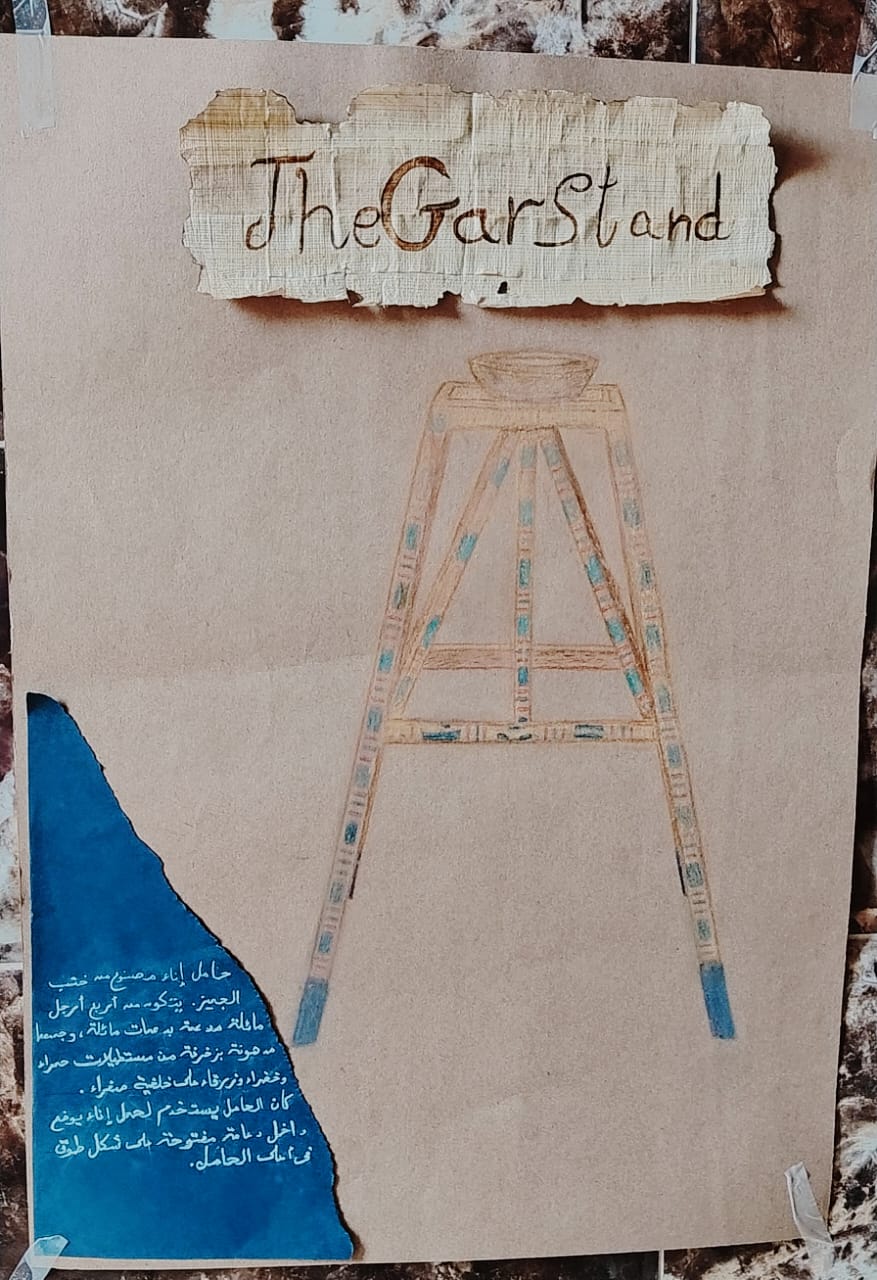 The Gar Stand
حامل إناء مصنوع من خشب
الجميز. يتكون من أربع أرجل
مائلة مدعمة بدعامات مائلة، وجميعها
مدهونة بزخرفة من مستطيلات حمراء
وخضراء وزرقاء على خلفية صفراء.
كان الحامل يستخدم لحمل إناء يوضع
داخل دعامة مفتوحة على شكل طوق
فى أعلى الحامل.